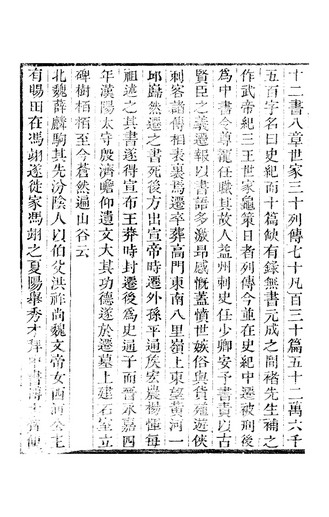 十二書八章世家三十列傳七十凡百三十篇五十二萬六千
五百字名曰史紀而十篇缺有錄無書元成之間褚先生補之
作武帝紀三王世家龜策日者列傳今並在史紀中遷被刑後
為中書令尊寵任職其故人益州刺史任少卿安予書責以古
賢臣之義遷報以書語多激昂感慨蓋憤世嫉俗與貨殖遊俠
刺客諸傳相表裏焉遷卒葬高門東南八里嶺上東望黃河一
邱巋然遷之書死後方出宣帝時遷外孫平通侯楊惲每
祖述之其書遂得宣布王莽時封遷後為史通子而晉永嘉四
年漢陽太守殷濟瞻仰遺文大其功德遂於遷墓上建石室立
碑樹栢栢至今蒼然遍山谷云
北魏薛驎駒其先汾陰人以伯父洪祚尚魏文帝女西河公主
有賜田在馮翊遂徙家馮翊之夏陽舉秀才拜中書博士齊使